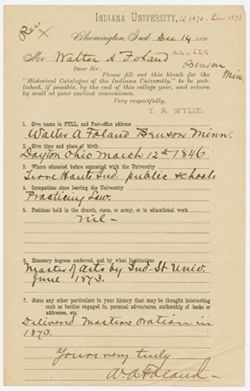 INDIANA UNIVERSITY,
Bloomington, Ind. Dec 14, 188
Mr Walter A Foland
Benson
Minn
Dear Sir:
Please fill out this blank for the
"Historical Catalogue of the Indiana University," to be published, if possible, by the end of this college year, and return
by mail at your earliest convenience.
Very respectfully,
T. A. WYLIE.
1. Give name in FULL, and Post-office address
Walter A Foland Benson Minn.
2. Give time and place of birth
Dayton Ohio March 12th 1846
3. Where educated before connected with the University
Terre Haute Ind. public schools
4. Occupations since leaving the University
Practicing Law.
5. Positions held in the church, state, or army, or in educational work
nil-
6. Honorary degrees conferred, and by what Institutions
Master of Arts by Ind. St. Univ.
June 1873.
7. State any other particulars in your history that may be thought interesting
such as battles engaged in, personal adventures, authorship of books or
addresses, etc.
Delivered Masters oration in
1873.
Yours very truly
W. A. Foland